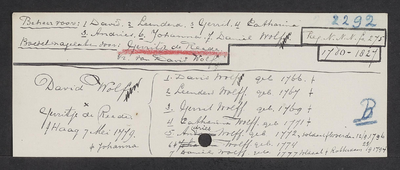 Beheer voor: 1 David, 2 Leendert, 3 Gerrit, 4 Catharina
5 Andries, 6 Johannes, 7 Daniel Wolff
Boedel nagelaten door: Gerritje de Reeder
w. van David Wolff
2292
Reg. N. N. f. 275
1780-1827
David Wolff
x
Gerritje de Reeder
's Haag 7 Mei 1779.
+ Johanna
1 David Wolff geb 1766. +
2 Leendert Wolff geb 1767 +
3 Gerrit Wolff geb 1769 +
4 Catharina Wolff geb 1771 +
5 Andries Wolff geb 1772,
6 Wolff geb 1774
7 Daniel Wolff geb 1777
B